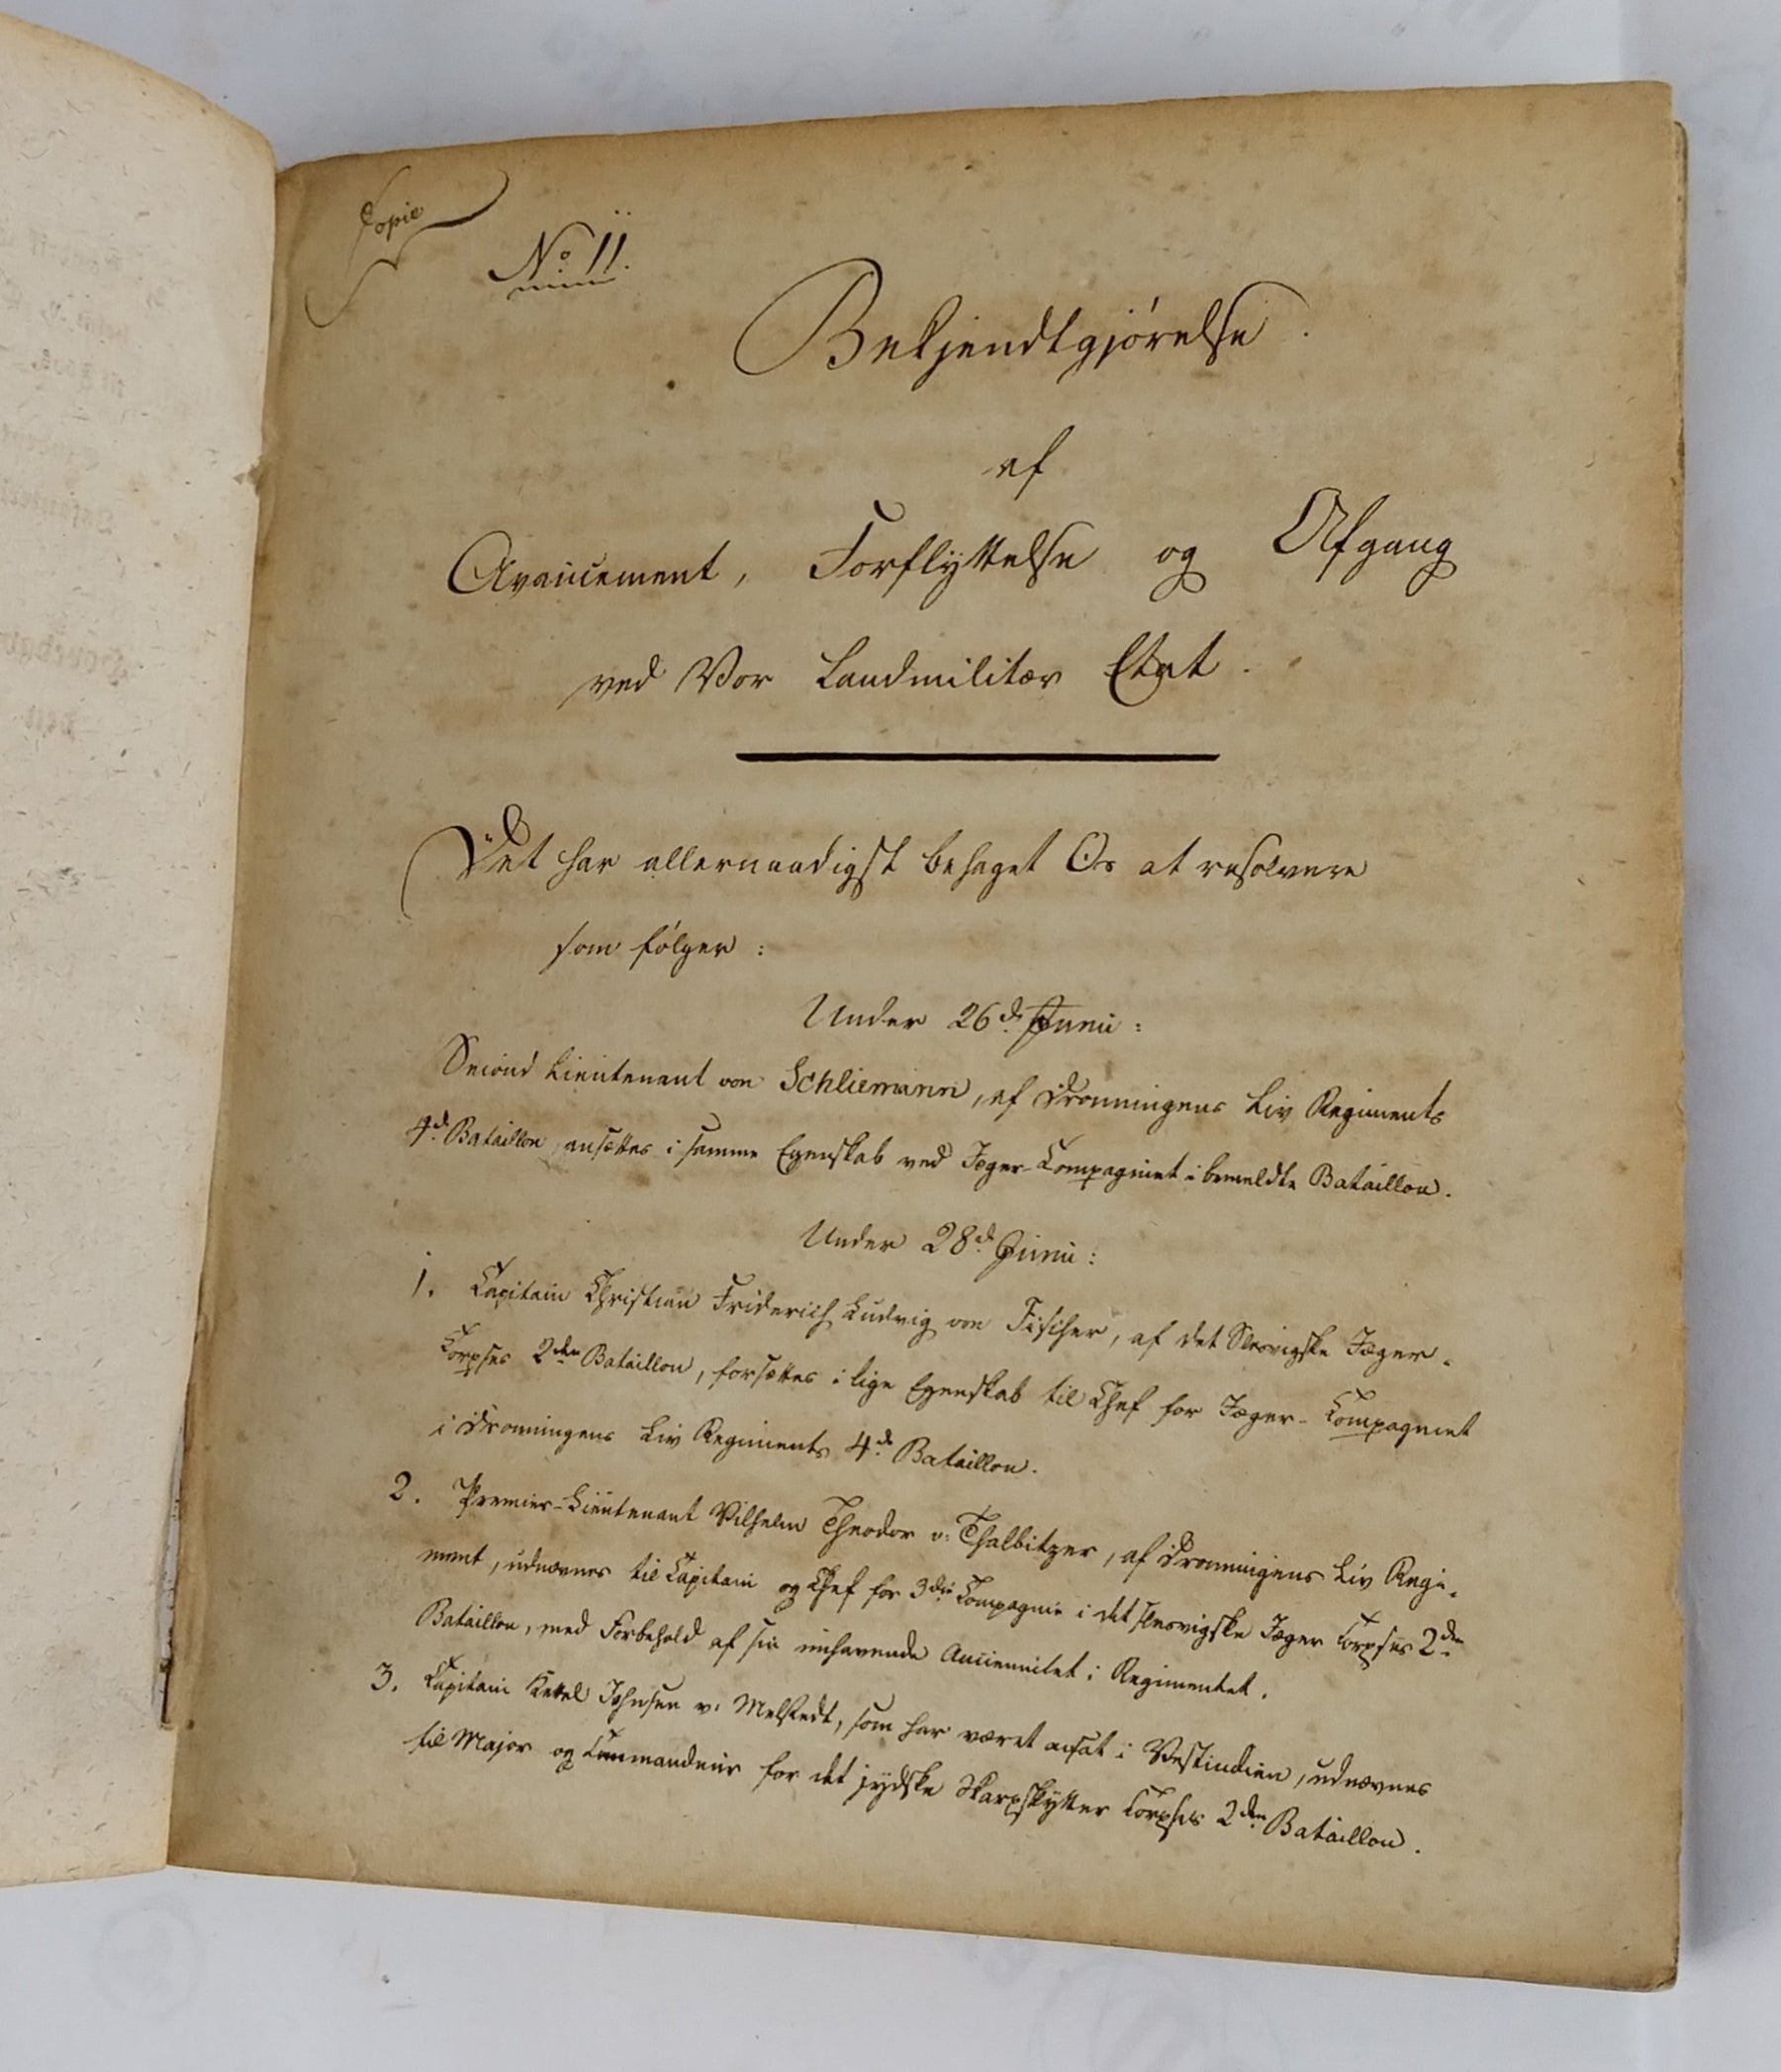 Copie
No 11.
Bekjendtgjørelse
af
Avancement, Forflyttelse og Afgang
ved Vor Landmilitær Etat.
Det har allernaadigst behaget Os at resolvere
som følger:
Under 26d Junii:
Second Lieutenant von Schliemann, af Dronningens Liv Regiments
4d Bataillon, ansættes i samme Egenskab ved Jæger-Compagniet i bemeldte Bataillon.
Under 28d Junii:
1. Capitain Christian Friderich Ludvig von Fischer, af det Slesvigske Jæger-
Corpses 2den Bataillon, forsættes i lige Egenskab til Chef for Jæger-Compagniet
i Dronningens Liv Regiments 4d Bataillon.
2. Premier-Lieutenant Vilhelm Theodor v. Thalbitzer, af Dronningens Liv Regi-
ment, udnævnes til Capitain og Chef for 3die Compagnie i det slesvigske Jæger Corpses 2den
Bataillon, med Forbehold af sin inhavende Anciennitet i Regimentet.
3. Capitain Ketel Johnsen v. Melstedt, som har været ansat i Vestindien, udnævnes
til Major og Commandeur for det jydske Skarpskytter Corpses 2den Bataillon.